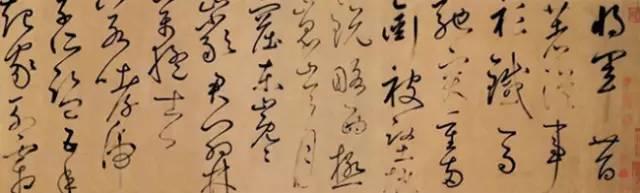 將軍昔
著從事
衫鐵馬
馳突重兩
銜被堅
銳略西極
崑崙月
窟東嶄
嵒君門羽林
萬猛士
惡若哮虎
子所監五年
起家列霜